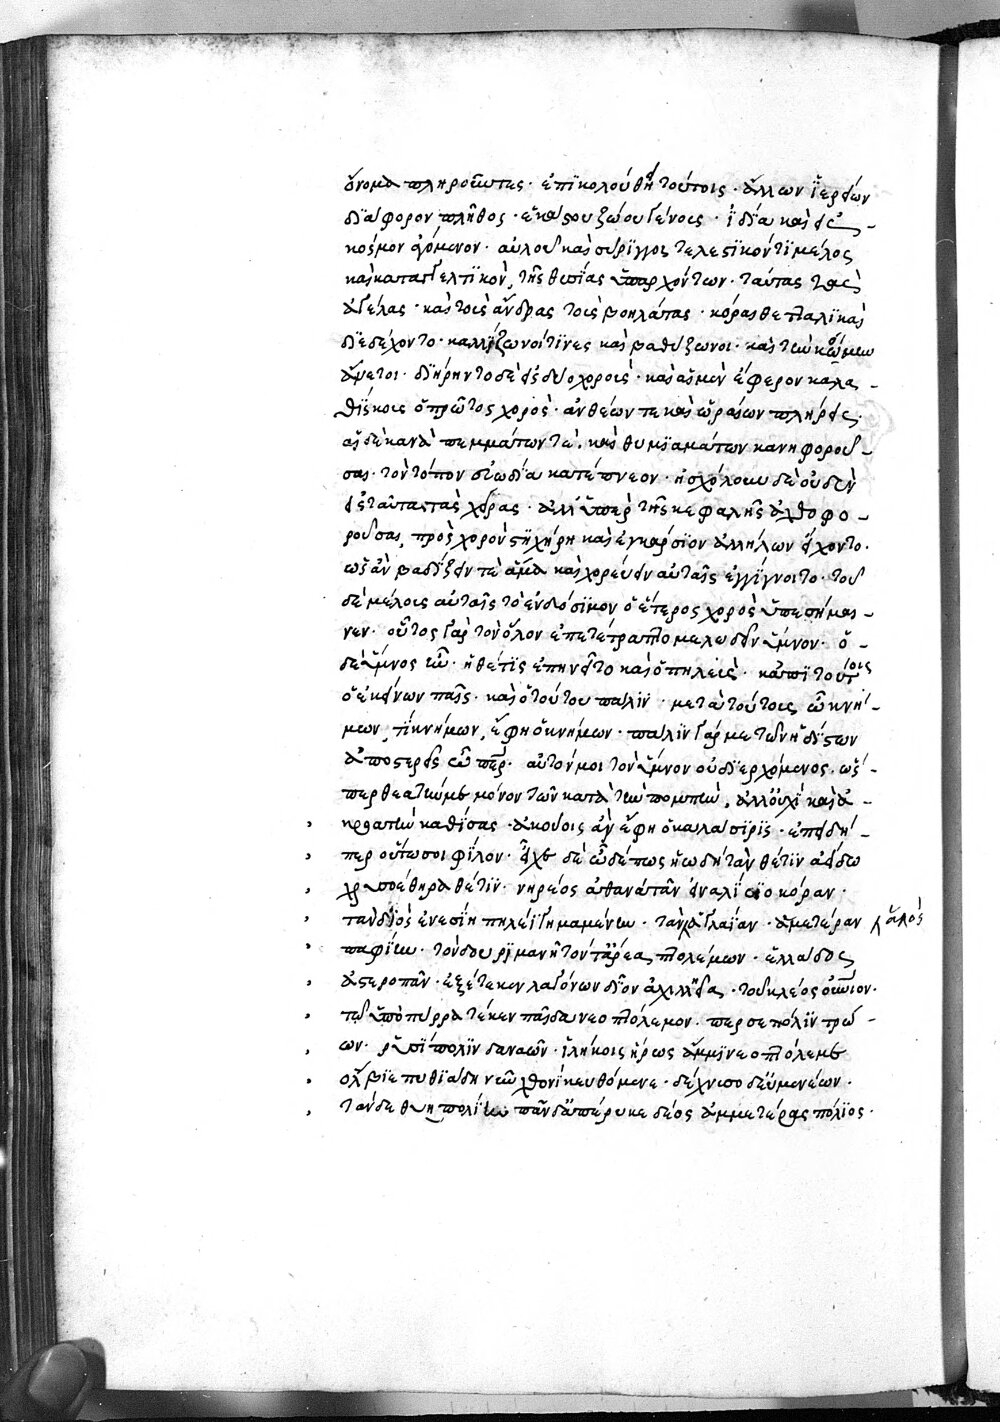 ὄνομα πληροῦντες · ἐπϊκολούθει τούτοις · ἄλλων ϊἑρείων
διάφορον πλῆθος · ἑκάστου ζώου γένους · ϊδία καὶ εἰς
κόσμον ἀγόμενον · αὐλοῦ καὶ σύριγγος τελεστικόν τι μέλος
καὶ καταγγελτικὸν, τῆς θυσίας ὑπαρχόντων · ταύτας τὰς
ἀγέλας · καὶ τοὺς ἄνδρας τοὺς βοηλάτας · κόραι θετταλικαὶ
διεδέχοντο · καλλίζωνοί τινες καὶ βαθύζωνοι · καὶ τὴν κόμην
ἄνετοι · διήρηντο δὲ εἰς δύο χορούς · καὶ αἱ μὲν ἔφερον καλα-
θίσκους ὁ πρῶτος χορὸς · ἀνθέων τε καὶ ὡραίων πλήρεις ·
αἱ δὲ κανᾶ πεμμάτων τὲ · καὶ θυμιαμάτων κανηφοροῦ-
σαι · τὸν τόπον εὐωδία κατέπνεον · ἠσχόλουν δὲ οὐδὲν
εἰς ταῦτα τὰς χεῖρας · ἀλλ' ὑπὲρ τῆς κεφαλῆς ἀχθοφο-
ροῦσαι, πρὸς χορὸν στιχήρη καὶ ἐγκάρσιον ἀλλήλων εἴχοντο ·
ὡς ἂν βαδίζειν τὲ ἅμα καὶ χορεύειν αὐταῖς ἐγγίγνοιτο · τοῦ
δὲ μέλους αὐταῖς τὸ ἐνδόσιμον ὁ ἕτερος χορὸς ὑπεσήμαι-
νεν · οὗτος γὰρ τὸν ὅλον ἐπετέτραπτο μελωδεῖν ὕμνον · ὁ
δὲ ὕμνος ἦν · ἡ θέτις ἐπηνεῖτο καὶ ὁ πηλεὺς · κἀπὶ τούτοις
ὁ ἐκείνων παῖς · καὶ ὁ τούτου πάλιν · μετὰ τούτοις ὦ κνή-
μων, τί κνήμων, ἔφη ὁ κνήμων · πάλιν γάρ με τῶν ἡδίστων
ἀποστερεῖς ὦ πάτερ · αὐτόν μοι τὸν ὕμνον οὐ διερχόμενος · ὥσ-
περ θεατήν με μόνον τῶν κατὰ τὴν πομπὴν · ἀλλ' οὐχὶ καὶ ἀ-
κροατὴν καθίσας · ἀκούοις ἂν ἔφη ὁ καλάσιρις · ἐπειδή-
περ οὕτω σοι φίλον · εἶχε δέ ὧδέ πως ἡ ὠδή τὰν θέτιν ἀείδω
χρυσοέθειρα θέτιν · νηρέος ἀθανάταν εἰναλίοιο κόραν ·
τὰν διὸς ἐνεσίη πηλέϊ γημαμένην · τὰν ἁλὸς ἀγλαΐαν · ἁμετέραν
παφίην · τὸν δουριμανῆ τόν τ' ἄρεα πτολέμων · ἑλλάδος
ἀστεροπὰν · ἐξέτεκεν λαγόνων δῖον ἀχιλλῆα · τοῦ κλέος οὐράνιον ·
τῷ ὑπὸ πύρρα τέκεν παῖδα νεοπτόλεμον · περσέπολιν τρώ-
ων · ρυσίπολιν δαναῶν · ἱλήκοις ἥρως ἄμμι νεοπτόλεμε
ὄλβιε πυθιάδι νῦν χθονὶ κευθόμενε · δέχνυσο δ' εὐμενέων ·
τάνδε θυηπολίην πᾶν δ' ἀπέρυκε δέος ἁμμετέρας πόλιος ·